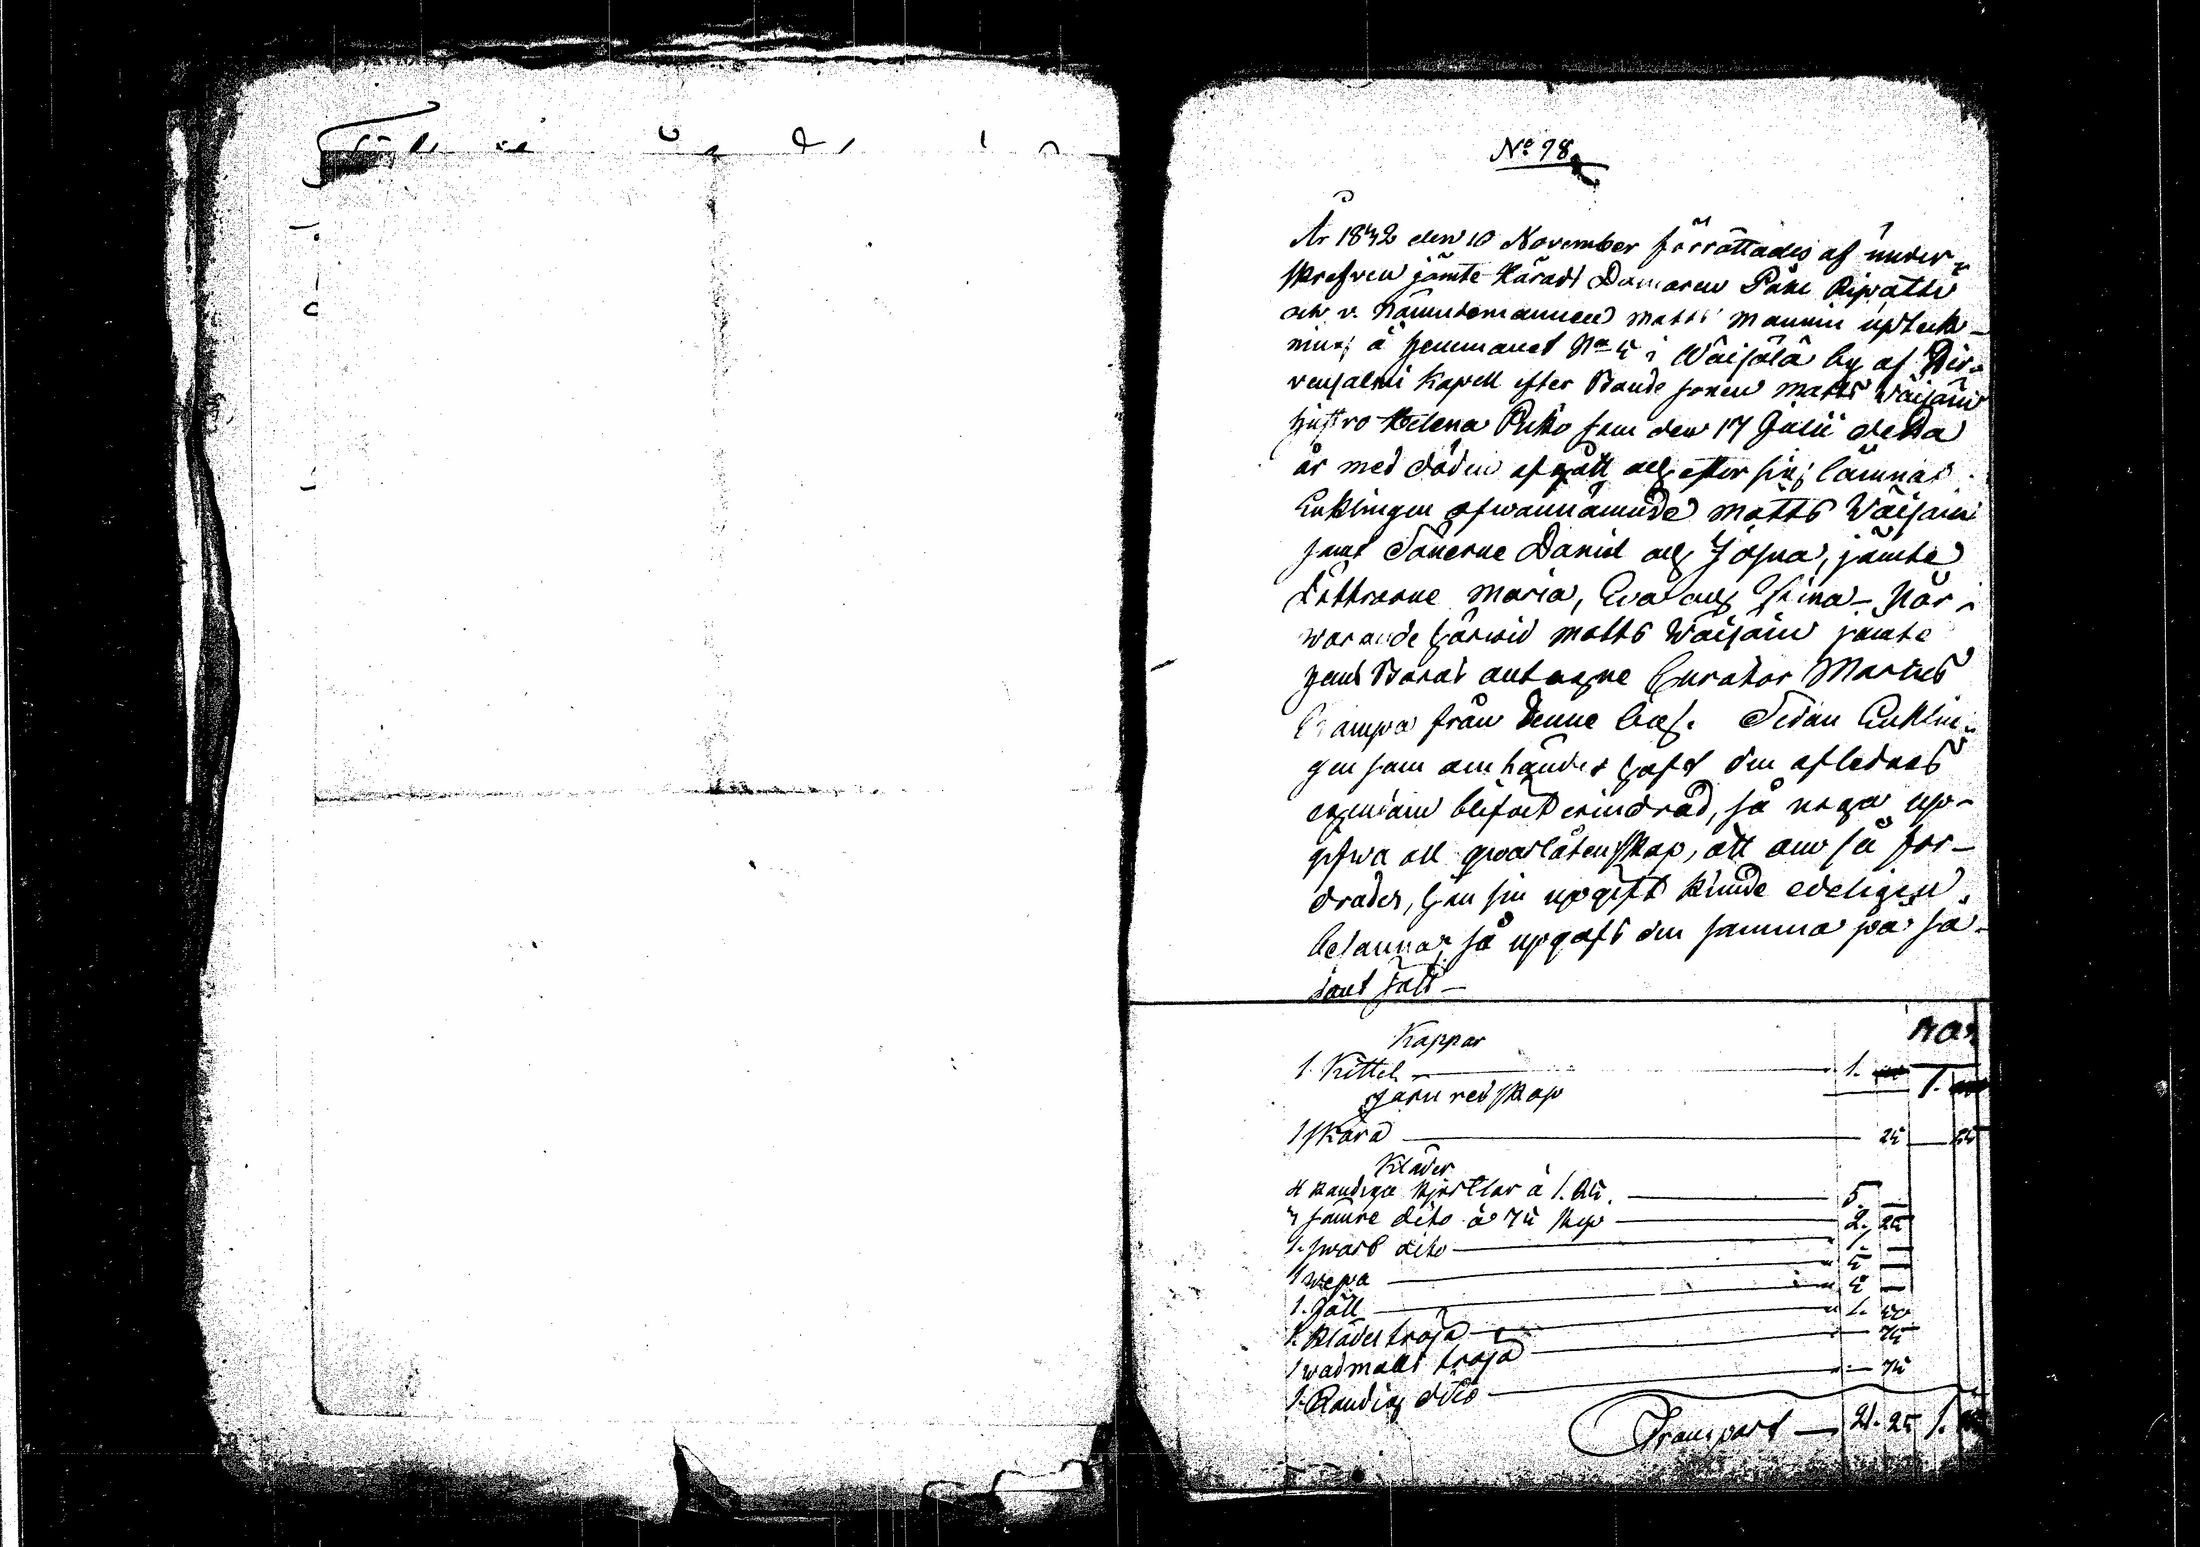 No 98
År 1842 den 10 November förrättades af under-
skrefven jämte Härads Domaren Påhl Ripatti
och v. Nämndemannen Matts Manni uptek-
ning å hemmanet No 5 i Wäisälä by af Hir-
vensalmi Kapell efter Bonde sonen Matts Väisäin
hustro Helena Pukko som den 17 Julii detta
år med döden afgått och efter sig lämnat
Enklingen ofwannämnde Matts Väisäin
samt Sönerne Daniel och Josua, jämte
döttrarne Maria, Eva och Stina - När-
warande härwid Matts Wäisäin jämte
hans Barns antagne Curator Marcus
från denne by. Sedan Enklin-
gen som om händer haft den aflednes
egendom blifvit erindrad, så noga up-
gifwa all qwarlåtenskap, att om så for-
drades, han sin uppgift kunde edeligen
besanna, så upgafs den samma på så-
dant sätt -
Kappar
1. Kittel 1. 1.
Järn redskap
1 skära 25 25
Kläder
4 Randiga Kjortlar à 1. 25. 5. -
3 sämre dito à 75 kop 2. 25
1. swart dito 1. -
1 wepa 5 -
1. fäll 5 -
1. Klädes tröja 1. 50
1 wadmals tröja 75
1. Randig dito 75
Transport - 21. 25 1.